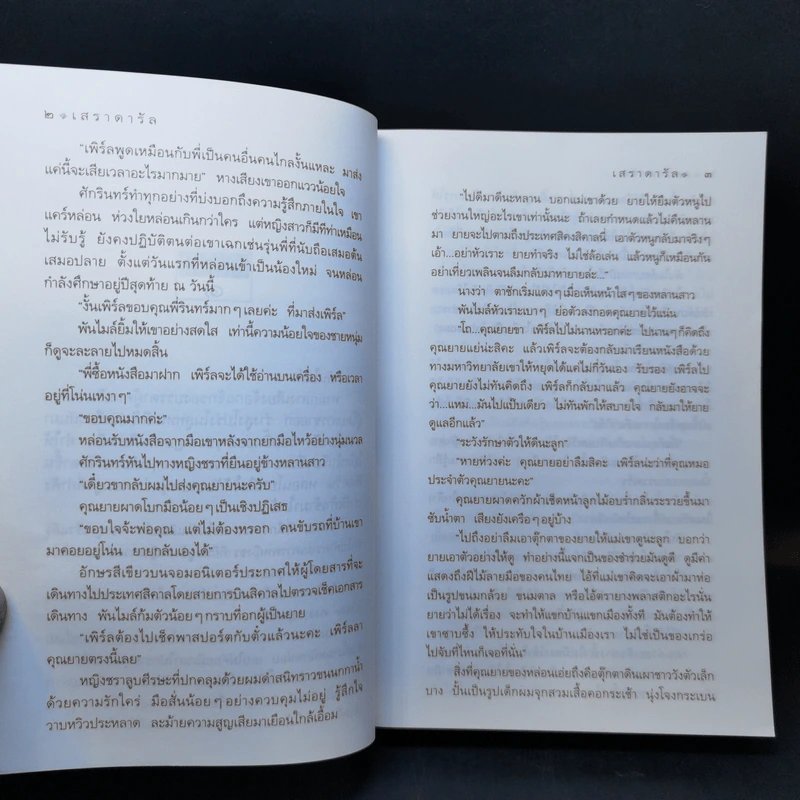 ๒ เสราดารัล
"เพิร์ลพูดเหมือนกับพี่เป็นคนอื่นคนไกลงั้นแหละ มาส่ง
แค่นี้จะเสียเวลาอะไรมากมาย" หางเสียงเขาออกแววน้อยใจ
ศักรินทร์ทำทุกอย่างที่บ่งบอกถึงความรู้สึกภายในใจ เขา
แคร์หล่อน ห่วงใยหล่อนเกินกว่าใคร แต่หญิงสาวก็มีทีท่าเหมือน
ไม่รับรู้ ยังคงปฏิบัติตนต่อเขาเฉกเช่นรุ่นพี่ที่นับถือเสมอต้น
เสมอปลาย ตั้งแต่วันแรกที่หล่อนเข้าเป็นน้องใหม่ จนหล่อน
กำลังศึกษาอยู่ปีสุดท้าย ณ วันนี้
"งั้นเพิร์ลขอบคุณพี่รินทร์มากๆ เลยค่ะ ที่มาส่งเพิร์ล"
พันไมล์ยิ้มให้เขาอย่างสดใส เท่านี้ความน้อยใจของชายหนุ่ม
ก็ดูจะละลายไปหมดสิ้น
"พี่ซื้อหนังสือมาฝาก เพิร์ลจะได้ใช้อ่านบนเครื่อง หรือเวลา
อยู่ที่โน่นเหงาๆ"
"ขอบคุณมากค่ะ"
หล่อนรับหนังสือจากมือเขาหลังจากยกมือไหว้อย่างนุ่มนวล
ศักรินทร์หันไปทางหญิงชราที่ยืนอยู่ข้างหลานสาว
"เดี๋ยวขากลับผมไปส่งคุณยายนะครับ"
คุณยายผาดโบกมือน้อยๆ เป็นเชิงปฏิเสธ
"ขอบใจจ้ะพ่อคุณ แต่ไม่ต้องหรอก คนขับรถที่บ้านเขา
มาคอยอยู่โน่น ยายกลับเองได้"
อักษรสีเขียวบนจอมอนิเตอร์ประกาศให้ผู้โดยสารที่จะ
เดินทางไปประเทศสิคาลโดยสายการบินสิคาลไปตรวจเช็คเอกสาร
เดินทาง พันไมล์ก้มตัวน้อยๆ กราบที่อกผู้เป็นยาย
"เพิร์ลต้องไปเช็คพาสปอร์ตกับตั๋วแล้วนะคะ เพิร์ลลา
คุณยายตรงนี้เลย"
หญิงชราลูบศีรษะที่ปกคลุมด้วยผมดำสนิทราวขนนกกาน้ำ
ด้วยความรักใคร่ มือสั่นน้อยๆ อย่างควบคุมไม่อยู่ รู้สึกใจ
วาบหวิวประหลาด ละม้ายความสูญเสียมาเยือนใกล้เอื้อม
เสราดารัล ๓
"ไปดีมาดีนะหลาน บอกแม่เขาด้วย ยายให้ยืมตัวหนูไป
ช่วยงานใหญ่อะไรเขาเท่านั้นนะ ถ้าเลยกำหนดแล้วไม่คืนหลาน
มา ยายจะไปตามถึงประเทศสิคงสิคาลนี่ เอาตัวหนูกลับมาจริงๆ
เอ้า...อย่าหัวเราะ ยายทำจริง ไม่ใช่ล้อเล่น แล้วหนูก็เหมือนกัน
อย่าเที่ยวเพลินจนลืมกลับมาหายายล่ะ..."
นางว่า ตาชักเริ่มแดงๆ เมื่อเห็นหน้าใสๆ ของหลานสาว
พันไมล์หัวเราะเบาๆ ย่อตัวลงกอดคุณยายไว้แน่น
"โถ...คุณยายขา เพิร์ลไปไม่นานหรอกค่ะ ไปนานๆ ก็คิดถึง
คุณยายแย่น่ะสิคะ แล้วเพิร์ลจะต้องกลับมาเรียนหนังสือด้วย
ทางมหาวิทยาลัยเขาให้หยุดได้แค่ไม่กี่วันเอง รับรอง เพิร์ลไป
คุณยายยังไม่ทันคิดถึง เพิร์ลก็กลับมาแล้ว คุณยายยังอาจจะ
ว่า...แหม...มันไปแป๊บเดียว ไม่ทันพักให้สบายใจ กลับมาให้ยาย
ดูแลอีกแล้ว"
"ระวังรักษาตัวให้ดีนะลูก"
"หายห่วงค่ะ คุณยายอย่าลืมสิคะ เพิร์ลน่ะว่าที่คุณหมอ
ประจำตัวคุณยายนะคะ"
คุณยายผาดควักผ้าเช็ดหน้าลูกไม้อบร่ำกลิ่นระรวยขึ้นมา
ซับน้ำตา เสียงยังเครือๆ อยู่บ้าง
"ไปถึงอย่าลืมเอาตุ๊กตาของยายให้แม่เขาดูนะลูก บอกว่า
ยายเอาตัวอย่างให้ดู ทำอย่างนี้แจกเป็นของชำร่วยมันดูดี ดูมีค่า
แสดงถึงฝีไม้ลายมือของคนไทย ไอ้ที่แม่เขาคิดจะเอาผ้ามาห่อ
เป็นรูปขนมกล้วย ขนมตาล หรือไอ้ตรายางพลาสติกอะไรนั่น
ยายว่าไม่ได้เรื่อง จะทำให้แขกบ้านแขกเมืองทั้งที มันต้องทำให้
เขาซาบซึ้ง ให้ประทับใจในบ้านเมืองเรา ไม่ใช่เป็นของเกร่อ
ไปจับที่ไหนก็เจอที่นั่น"
สิ่งที่คุณยายของหล่อนเอ่ยถึงคือตุ๊กตาดินเผาชาววังตัวเล็ก
บาง ปั้นเป็นรูปเด็กผมจุกสวมเสื้อคอกระเช้า นุ่งโจงกระเบน